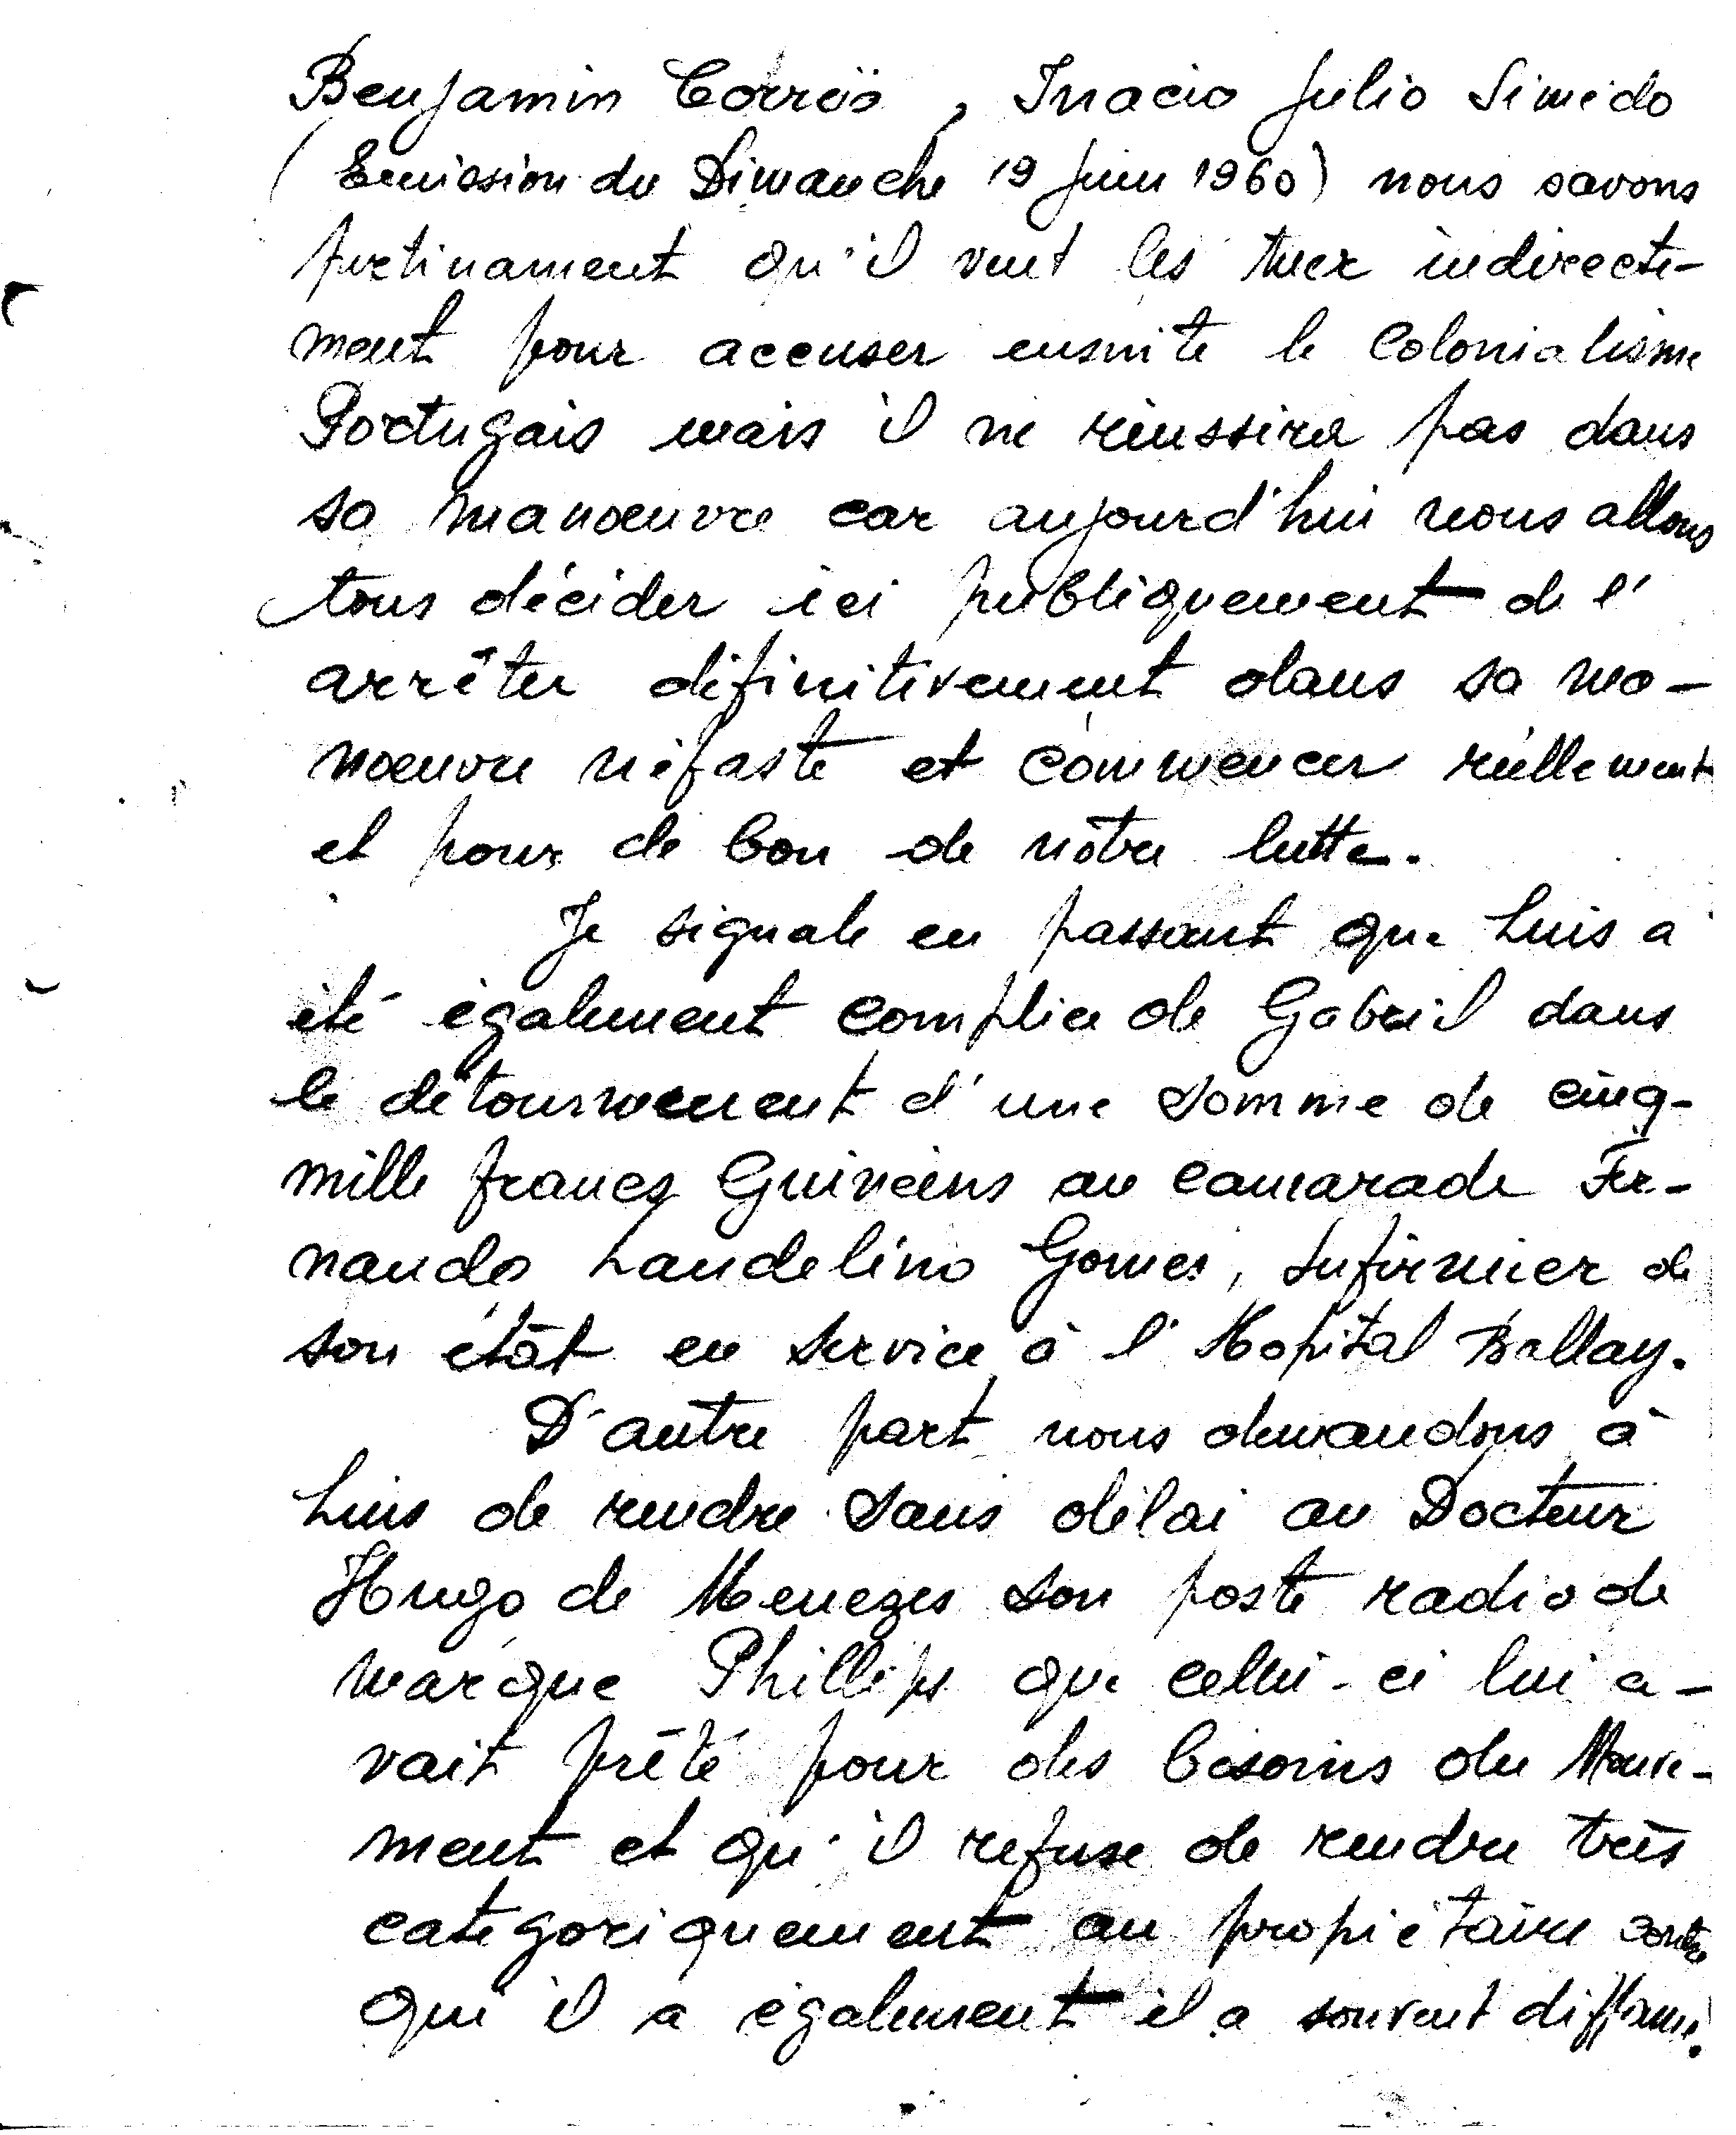 Benjamin Corrëa, Inacio Julio Simédo
(Emission du Dimanche 19 Juin 1960) nous savons
pertinament qu'il veut les tuer indirecte-
ment pour accuser ensuite le Colonialisme
Portugais mais il ne réussira pas dans
sa manœuvre car aujourd'hui nous allons
tous décider ici publiquement de l'
arrêter définitivement dans sa ma-
nœuvre néfaste et commencer réellement
et pour de bon de nôtre lutte.
Je signale en passant que Luis a
été également complice de Gabriel dans
le détournement d'une somme de cinq-
mille francs Guinéens au camarade Fer-
nando Landelino Gomes, Infirmier de
son étât en service à l'Hopital Ballay.
D'autre part nous demandons à
Luis de rendre sans délai au Docteur
Hugo de Menezes son poste radio de
marque Phillips que celui-ci lui a-
vait prêté pour des besoins du Mouve-
ment et qu'il refuse de rendre très
categoriquement au propiétaire contre
qui il a également il a souvent diffamé.